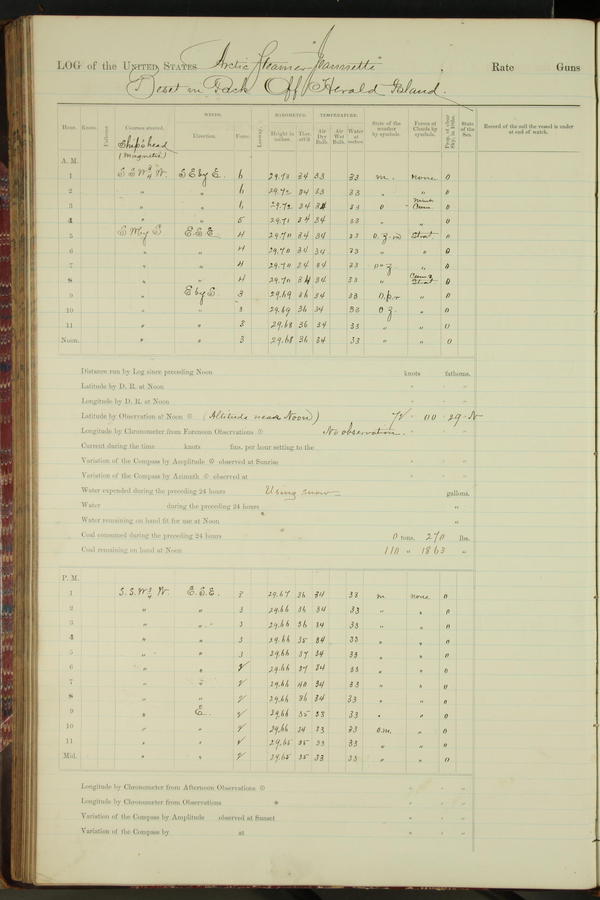 LOG of the UNITED STATES Arctic Steamer "Jeannette" Rate Guns
Beset in Pack Off Herald Island.
Hour. Knots. Fathoms. Courses steered. WINDS. Direction. Force. Leeway. BAROMETER. Height in inches. Ther. att'd TEMPERATURE. Air Dry Bulb. Air Wet Bulb. Water at surface. State of the weather by symbols. Forms of Clouds by symbols. Prop. of clear Sky, in 10ths. State of the Sea. Record of the sail the vessel is under at end of watch.
Ship's head
(Magnetic)
A. M.
1 SSW¾W. SE by E. 6 29.73 34 33 33 m. None 0
2 " " 6 29.72 34 33 33 " " 0
3 " " 6 29.72 34 34 33 0 0
4 " " 5 29.71 34 34 33 " " 0
5 E.S.E. 4 29.70 34 34 33 Strat. 0
6 " " 4 29.70 34 34 33 " " 0
7 " " 4 29.70 34 34 33 " 0
8 " " 4 29.70 34 34 33 " Strat 0
9 " E by S. 3 29.69 36 34 33 " 0
10 " " 3 29.69 36 34 33 " 0
11 " " 3 29.68 36 34 33 " " 0
Noon. " " 3 29.68 36 34 33 " " 0
Distance run by Log since preceding Noon knots fathoms.
Latitude by D. R. at Noon
Longitude by D. R. at Noon
Latitude by Observation at Noon ☉ (Altitude near Noon) 72 00 29 N
Longitude by Chronometer from Forenoon Observations ☉ No observation.
Current during the time knots fms. per hour setting to the
Variation of the Compass by Amplitude ☉ observed at Sunrise
Variation of the Compass by Azimuth ☉ observed at
Water expended during the preceding 24 hours Using snow gallons.
Water during the preceding 24 hours "
Water remaining on hand fit for use at Noon "
Coal consumed during the preceding 24 hours 0 tons. 270 lbs.
Coal remaining on hand at Noon 110 " 1863 "
P. M.
1 S.S.W¾W. E.S.E. 3 29.67 36 34 33 m. none 0
2 " " 3 29.66 36 34 33 " " 0
3 " " 3 29.66 36 34 33 " " 0
4 " " 3 29.66 35 34 33 " " 0
5 " " 3 29.66 37 34 33 " " 0
6 " " 2 29.66 37 34 33 " " 0
7 " " 2 29.66 40 34 33 " " 0
8 " " 2 29.66 36 34 33 " " 0
9 " E. 2 29.66 35 33 33 " " 0
10 " " 2 29.66 34 33 33 o.m. " 0
11 " " 2 29.65 35 33 33 " " 0
Mid. " " 2 29.65 35 33 33 " " 0
Longitude by Chronometer from Afternoon Observations ☉
Longitude by Chronometer from Observations *
Variation of the Compass by Amplitude observed at Sunset
Variation of the Compass by at